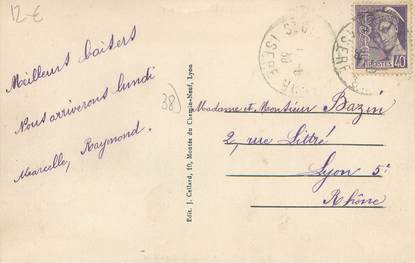 12-€
Meilleurs baisers
Nous arriverons lundi
Marcelle, Raymond.
38)
Edit. J. Cellard, 10, Montée du Chemin-Neuf, Lyon
ISERE
ISERE
POSTES 40
Madame et Monsieur Bazin
2, rue Littré
Lyon 5e
Rhône